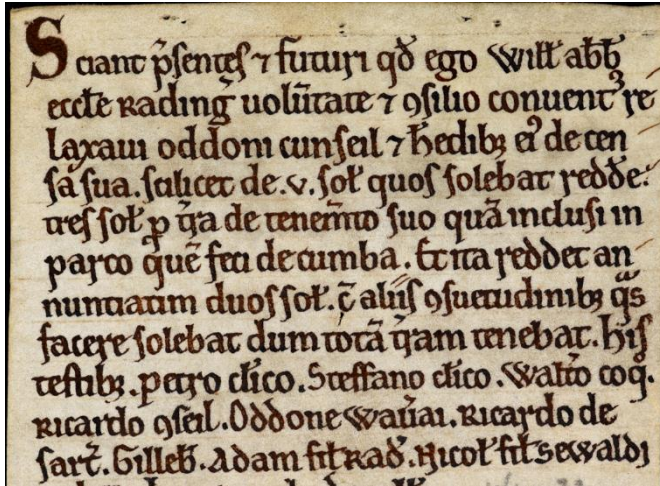 Sciant p̄sentes ⁊ futuri qđ ego Willꝉ abb̄
eccꝉe Rading̃ uolũtate ⁊ ꝯsilio conuentꝰ re
laxaui oddoni cunseil ⁊ ħedibꝫ eiꝰ de cen
sa sua. scilicet de .v. soꝉ quos solebat reddẽ.
tres soꝉ ꝑ t̃ra de tenem̃to suo quã inclusi in
parco quẽ feci de cumba. Et ita reddet an
nuntiatim duos soꝉ. c̃ aliis ꝯsuetudinibꝫ q̃s
facere solebat dum totã t̃ram tenebat. His
testibꝫ. petro cꝉico. Steffano cꝉico. Walt̃o coq̃.
Ricardo ꝯseil. Oddone waũai. Ricardo de
sart̃. Gilleb̃. Adam fiꝉ Rad̃. Nicoꝉ fiꝉ sewaldi